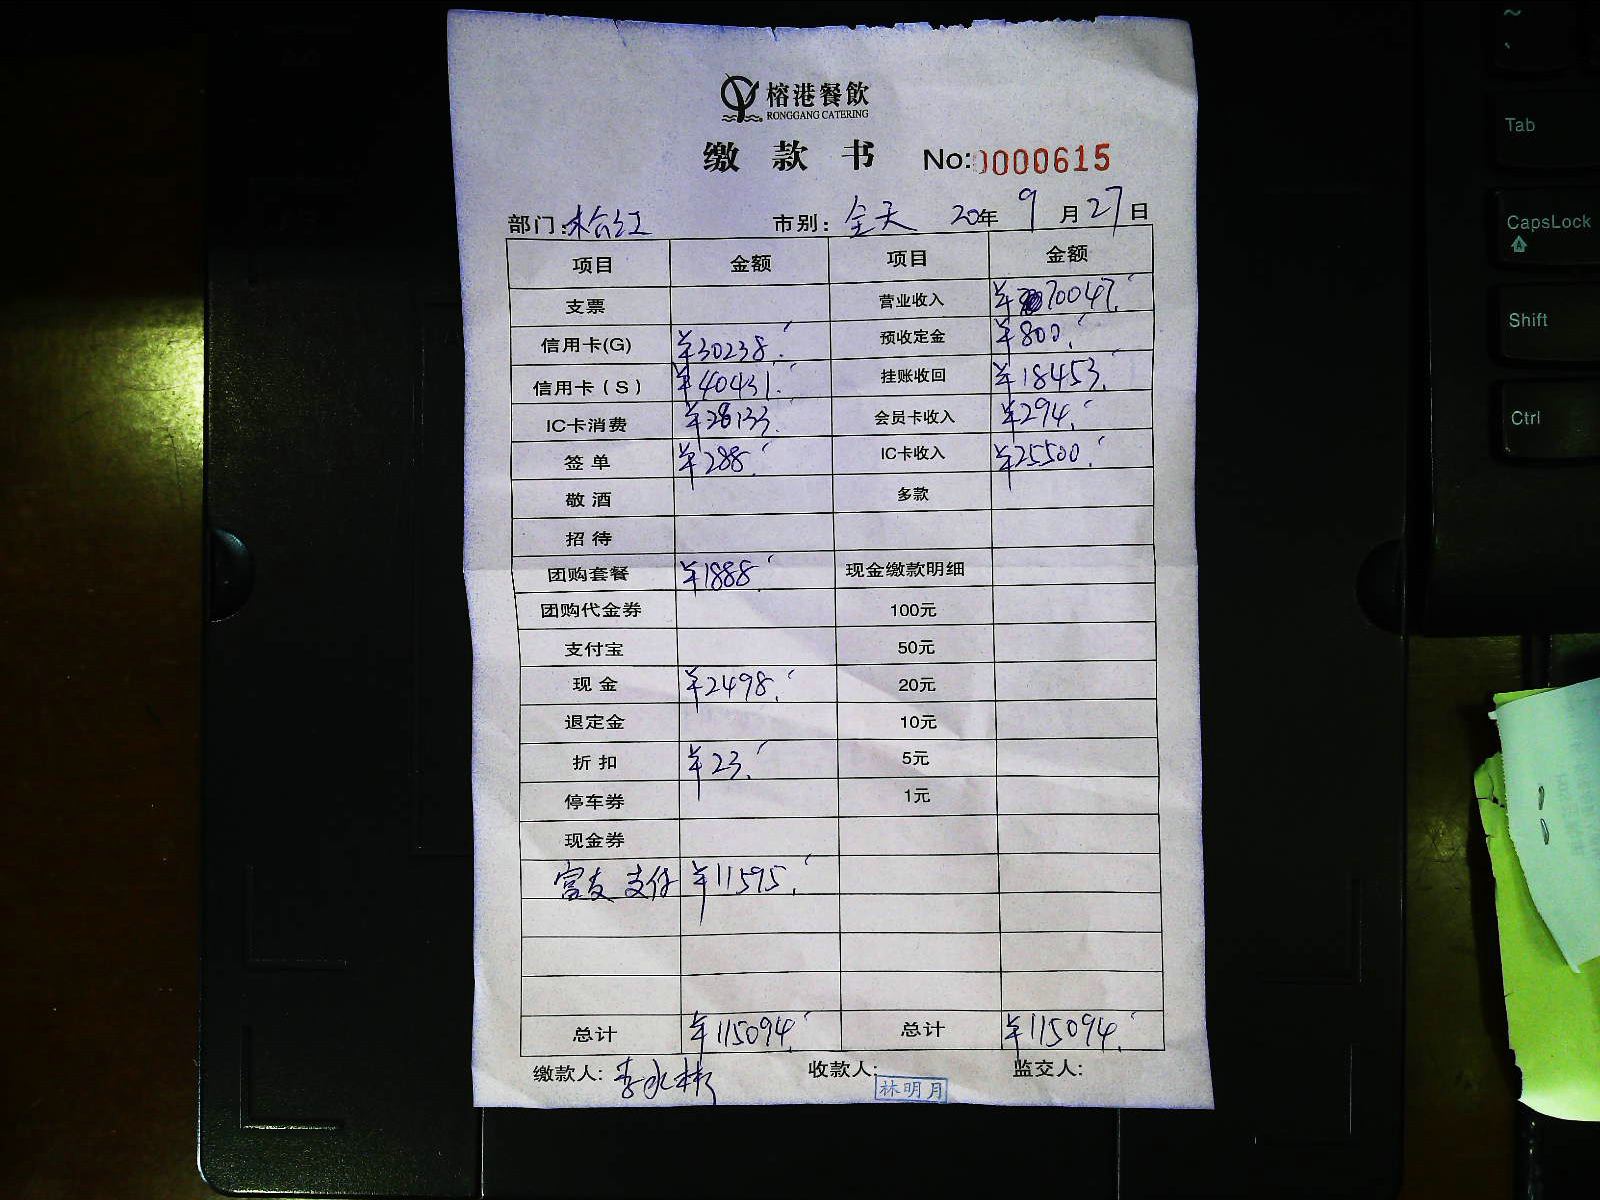 榕港餐飲
RONGGANG CATERING
缴款书 No:0000615
部门: 市别: 全天 20年 9月27日
项目 金额 项目 金额
支票 营业收入 ¥70047.
信用卡(G) ¥30238. 预收定金 ¥800.
信用卡(S) ¥40431. 挂账收回 ¥18453.
IC卡消费 ¥28133. 会员卡收入 ¥294.
签单 ¥288. IC卡收入 ¥25500.
敬酒 多款
招待
团购套餐 ¥1888. 现金缴款明细
团购代金券 100元
支付宝 50元
现金 ¥2498. 20元
退定金 10元
折扣 ¥23. 5元
停车券 1元
现金券
富友支付 ¥11595.
总计 ¥115094. 总计 ¥115094.
缴款人: 李永彬 收款人: 林明月 监交人:
~
Tab
CapsLock
Shift
Ctrl